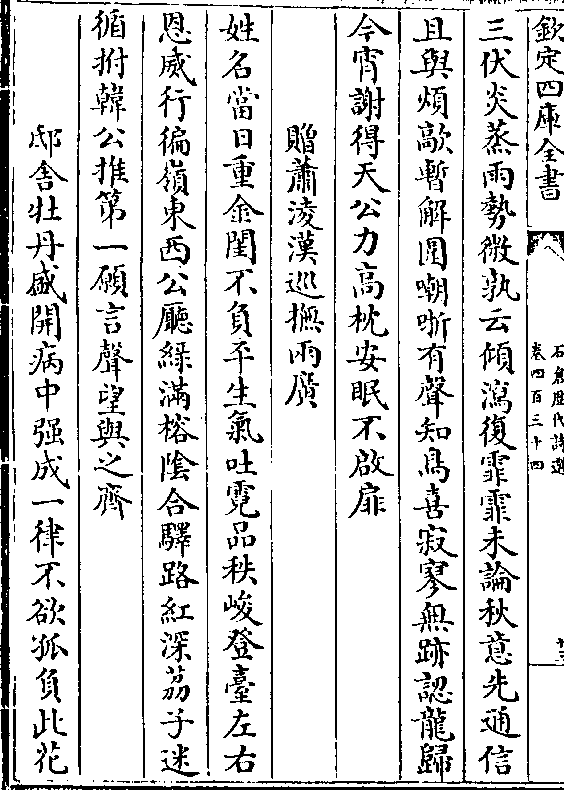 欽定四庫全書
石倉歷代詩選
卷四百三十四
十三
三伏炎蒸雨勢微孰云傾瀉復霏霏未論秋意先通信
且與煩歊暫解圍嘲哳有聲知鳥喜寂寥無跡認龍歸
今宵謝得天公力高枕安眠不啟扉
贈蕭淩漢巡撫兩廣
姓名當日重金閨不負平生氣吐霓品秩峻登臺左右
恩威行徧嶺東西公廳綠滿榕陰合驛路紅深荔子迷
循拊韓公推第一願言聲望與之齊
邸舍牡丹盛開病中强成一律不欲孤負此花